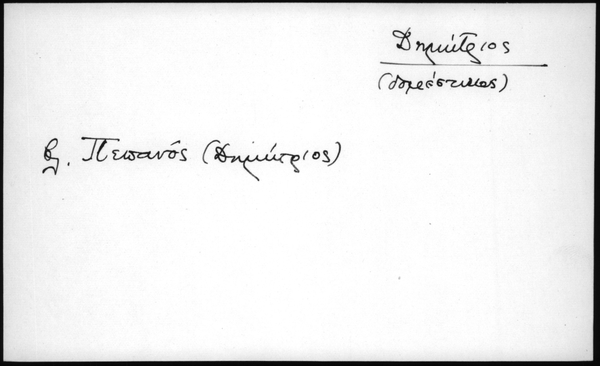 Δημήτριος
(δομέστικος)
βλ. Πεπανός (Δημήτριος)